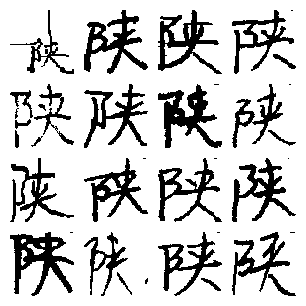 陕陕陕陕
陕陕陕陕
陕陕陕陕
陕陕陕陕